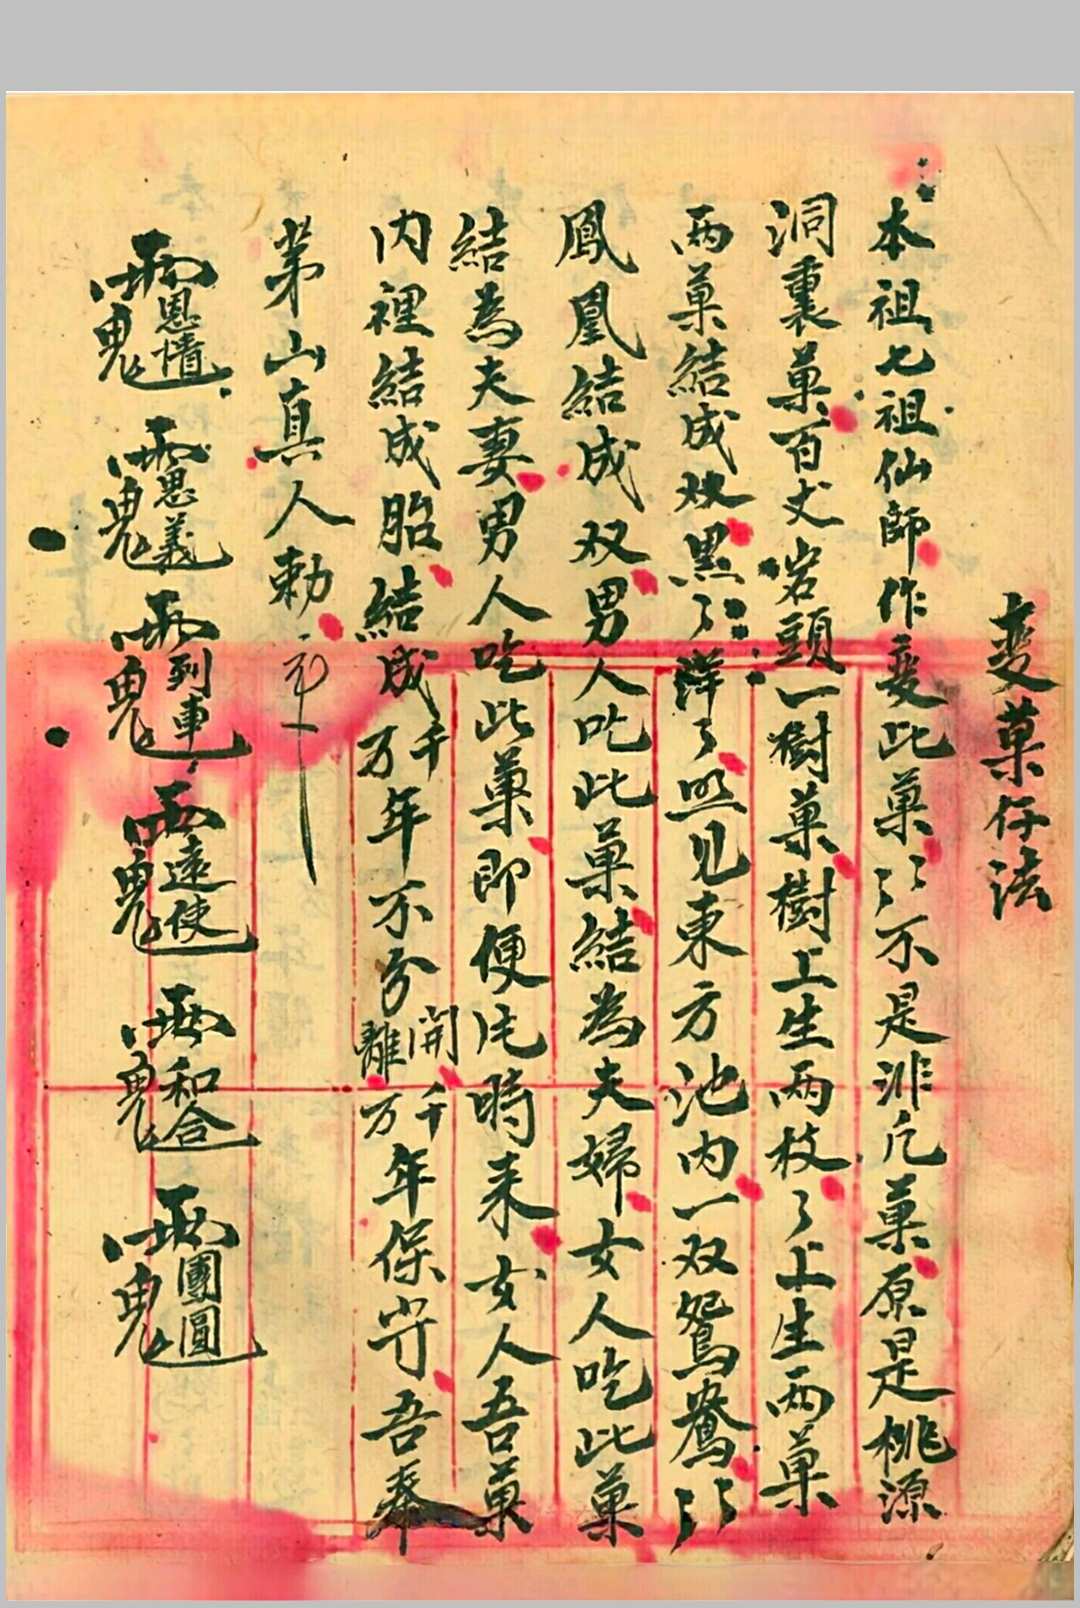 变菓仔法
本祖七祖仙師作变此菓〻不是非凡菓原是桃源
洞裏菓百丈岩頭一樹菓樹上生两枝〻上生两菓
两菓結成双黑〻洋〻照見東方池内一双鴛鴦〻
鳳凰結成双男人吃此菓結為夫婦女人吃此菓
結為夫妻男人吃此菓即便 時来女人吾菓
内裡結成胎結成千万年不分開離千万年保守吾奉
茅山真人勅令
恩情
恩義
列車
遠使
和合
團圓